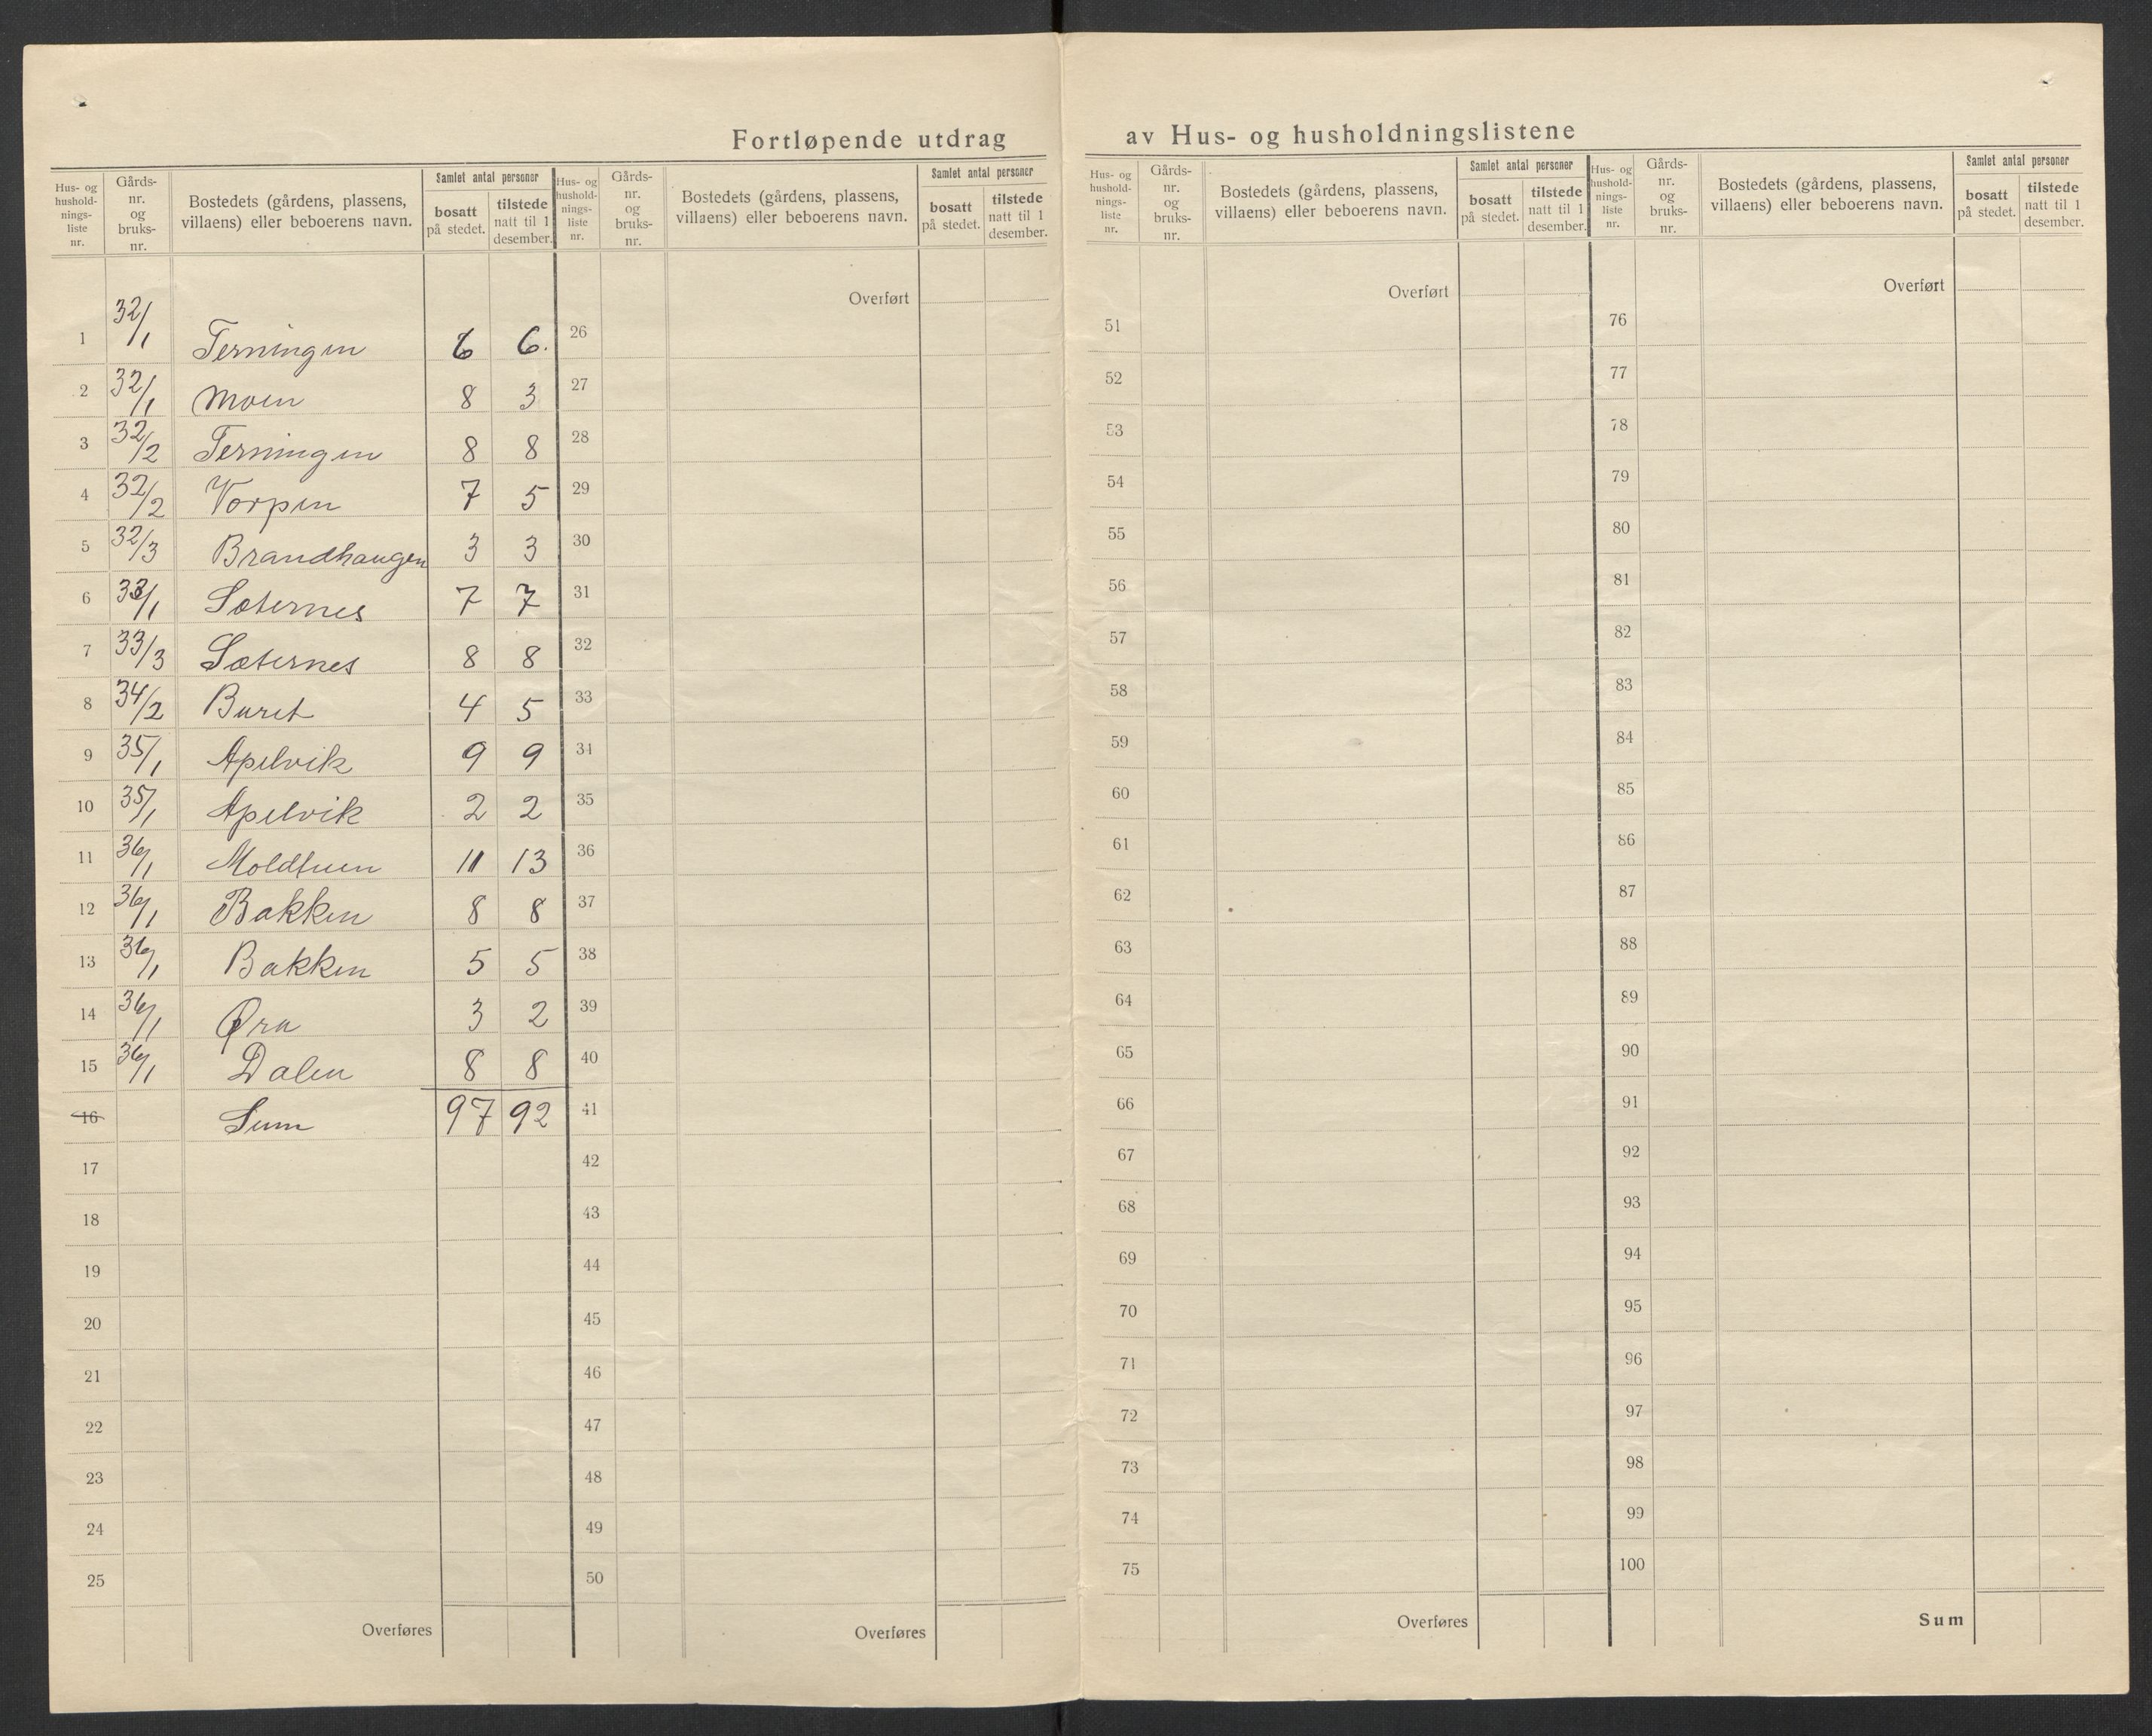 Fortløpende utdrag av Hus- og husholdningslistene
Hus- og hushold- nings- liste nr. Gårds- nr. og bruks- nr. Bostedets (gårdens, plassens, villaens) eller beboerens navn. Samlet antal personer bosatt på stedet. tilstede natt til 1 desember.
Hus- og hushold- nings- liste nr. Gårds- nr. og bruks- nr. Bostedets (gårdens, plassens, villaens) eller beboerens navn. Samlet antal personer bosatt på stedet. tilstede natt til 1 desember.
Hus- og hushold- nings- liste nr. Gårds- nr. og bruks- nr. Bostedets (gårdens, plassens, villaens) eller beboerens navn. Samlet antal personer bosatt på stedet. tilstede natt til 1 desember.
Hus- og hushold- nings- liste nr. Gårds- nr. og bruks- nr. Bostedets (gårdens, plassens, villaens) eller beboerens navn. Samlet antal personer bosatt på stedet. tilstede natt til 1 desember.
Overført Overført Overført
1 32/1 Terningen 6 6. 26 51 76
2 32/1 Moen 8 3 27 52 77
3 32/2 Terningen 8 8 28 53 78
4 32/2 Vorpen 7 5 29 54 79
5 32/3 Brandhaugen 3 3 30 55 80
6 33/1 Sæternes 7 7 31 56 81
7 33/3 Sæternes 8 8 32 57 82
8 34/2 Buret 4 5 33 58 83
9 35/1 Apelvik 9 9 34 59 84
10 35/1 Apelvik 2 2 35 60 85
11 36/1 Moldtuen 11 13 36 61 86
12 36/1 Bakken 8 8 37 62 87
13 36/1 Bakken 5 5 38 63 88
14 36/1 Øra 3 2 39 64 89
15 36/1 Dalen 8 8 40 65 90
16 Sum 97 92 41 66 91
17 42 67 92
18 43 68 93
19 44 69 94
20 45 70 95
21 46 71 96
22 47 72 97
23 48 73 98
24 49 74 99
25 50 75 100
Overføres Overføres Overføres Sum